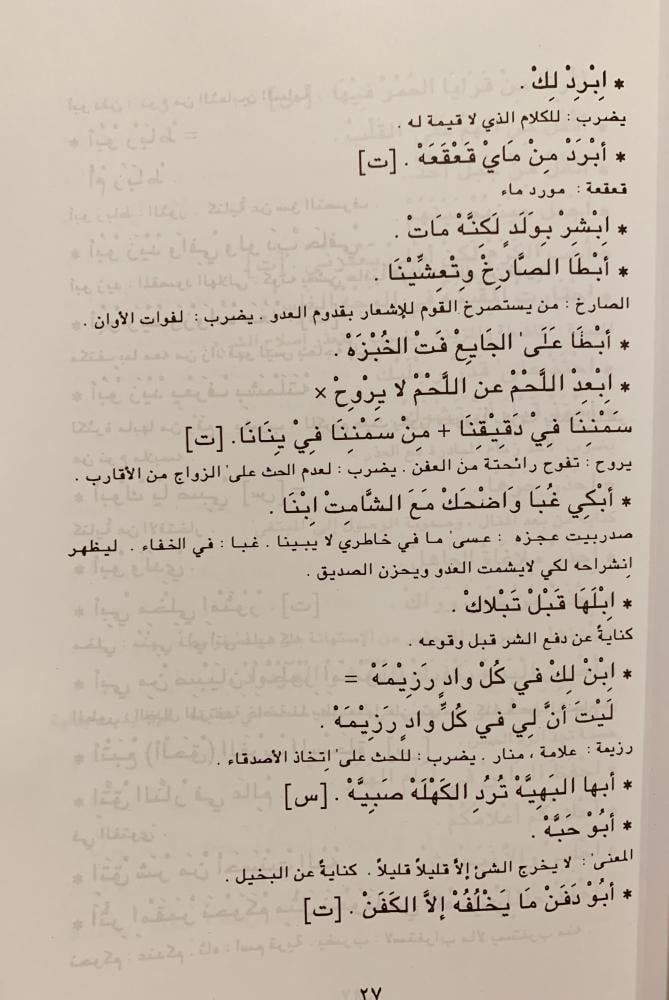 * اِبْرِدْ لِكْ .
يضرب : للكلام الذي لا قيمة له .
* أبْرَدْ مِنْ مَايْ قَعْقَعَهْ . [ت]
قعقعة : مورد ماء
* اِبْشِرْ بِوَلَدٍ لَكِنَّهْ مَاتْ .
* أبْطَا الصَّارِخْ وِتْعِشِّيْنَا .
الصارخ : من يستصرخ القوم للإشعار بقدوم العدو . يضرب : لفوات الأوان .
* أبْطَا عَلَىْ الجَايِعْ فَتْ الخُبْزَهْ .
* اِبْعِدْ اللَّحْمْ عن اللَّحْمْ لا يِرْوِحْ ×
سَمْنِنَا فِيْ دَقِيْقِنَا + مِنْ سَمْنِنَا فِيْ يِنَانَا . [ت]
يروح : تفوح رائحتة من العفن . يضرب : لعدم الحث علىْ الزواج من الأقارب .
* أبْكِي غُبَا وَاضْحَكْ مَعَ الشَّامِتْ اِبْنَا .
صدربيت عجزه : عسىْ ما في خاطري لا يبينا . غبا : في الخفاء . ليظهر
اِنشراحه لكي لايشمت العدو ويحزن الصديق .
* اِبْلَهَا قَبْلْ تَبْلاكْ .
كنايةً عن دفع الشر قبل وقوعه .
* اِبْنْ لِكْ في كُلْ وادٍ رَزِيْمَهْ =
لَيْتَ أنَّ لِيْ في كُلِّ وادٍ رَزِيْمَهْ .
رزيمة : علامة ، منار . يضرب : للحث علىْ اِتخاذ الأصدقاء .
* أبها البَهِيَّهْ تُرُدِ الكَهْلَهْ صَبِيَّهْ . [س]
* أبُوْ حَبَّهْ .
المعنىْ : لا يخرج الشئ إلاَّ قليلاً قليلاً . كنايةً عن البخيل .
* أبُوْ دَفَنْ مَا يَخْلُفُهْ إلاَّ الكَفَنْ . [ت]
٢٧